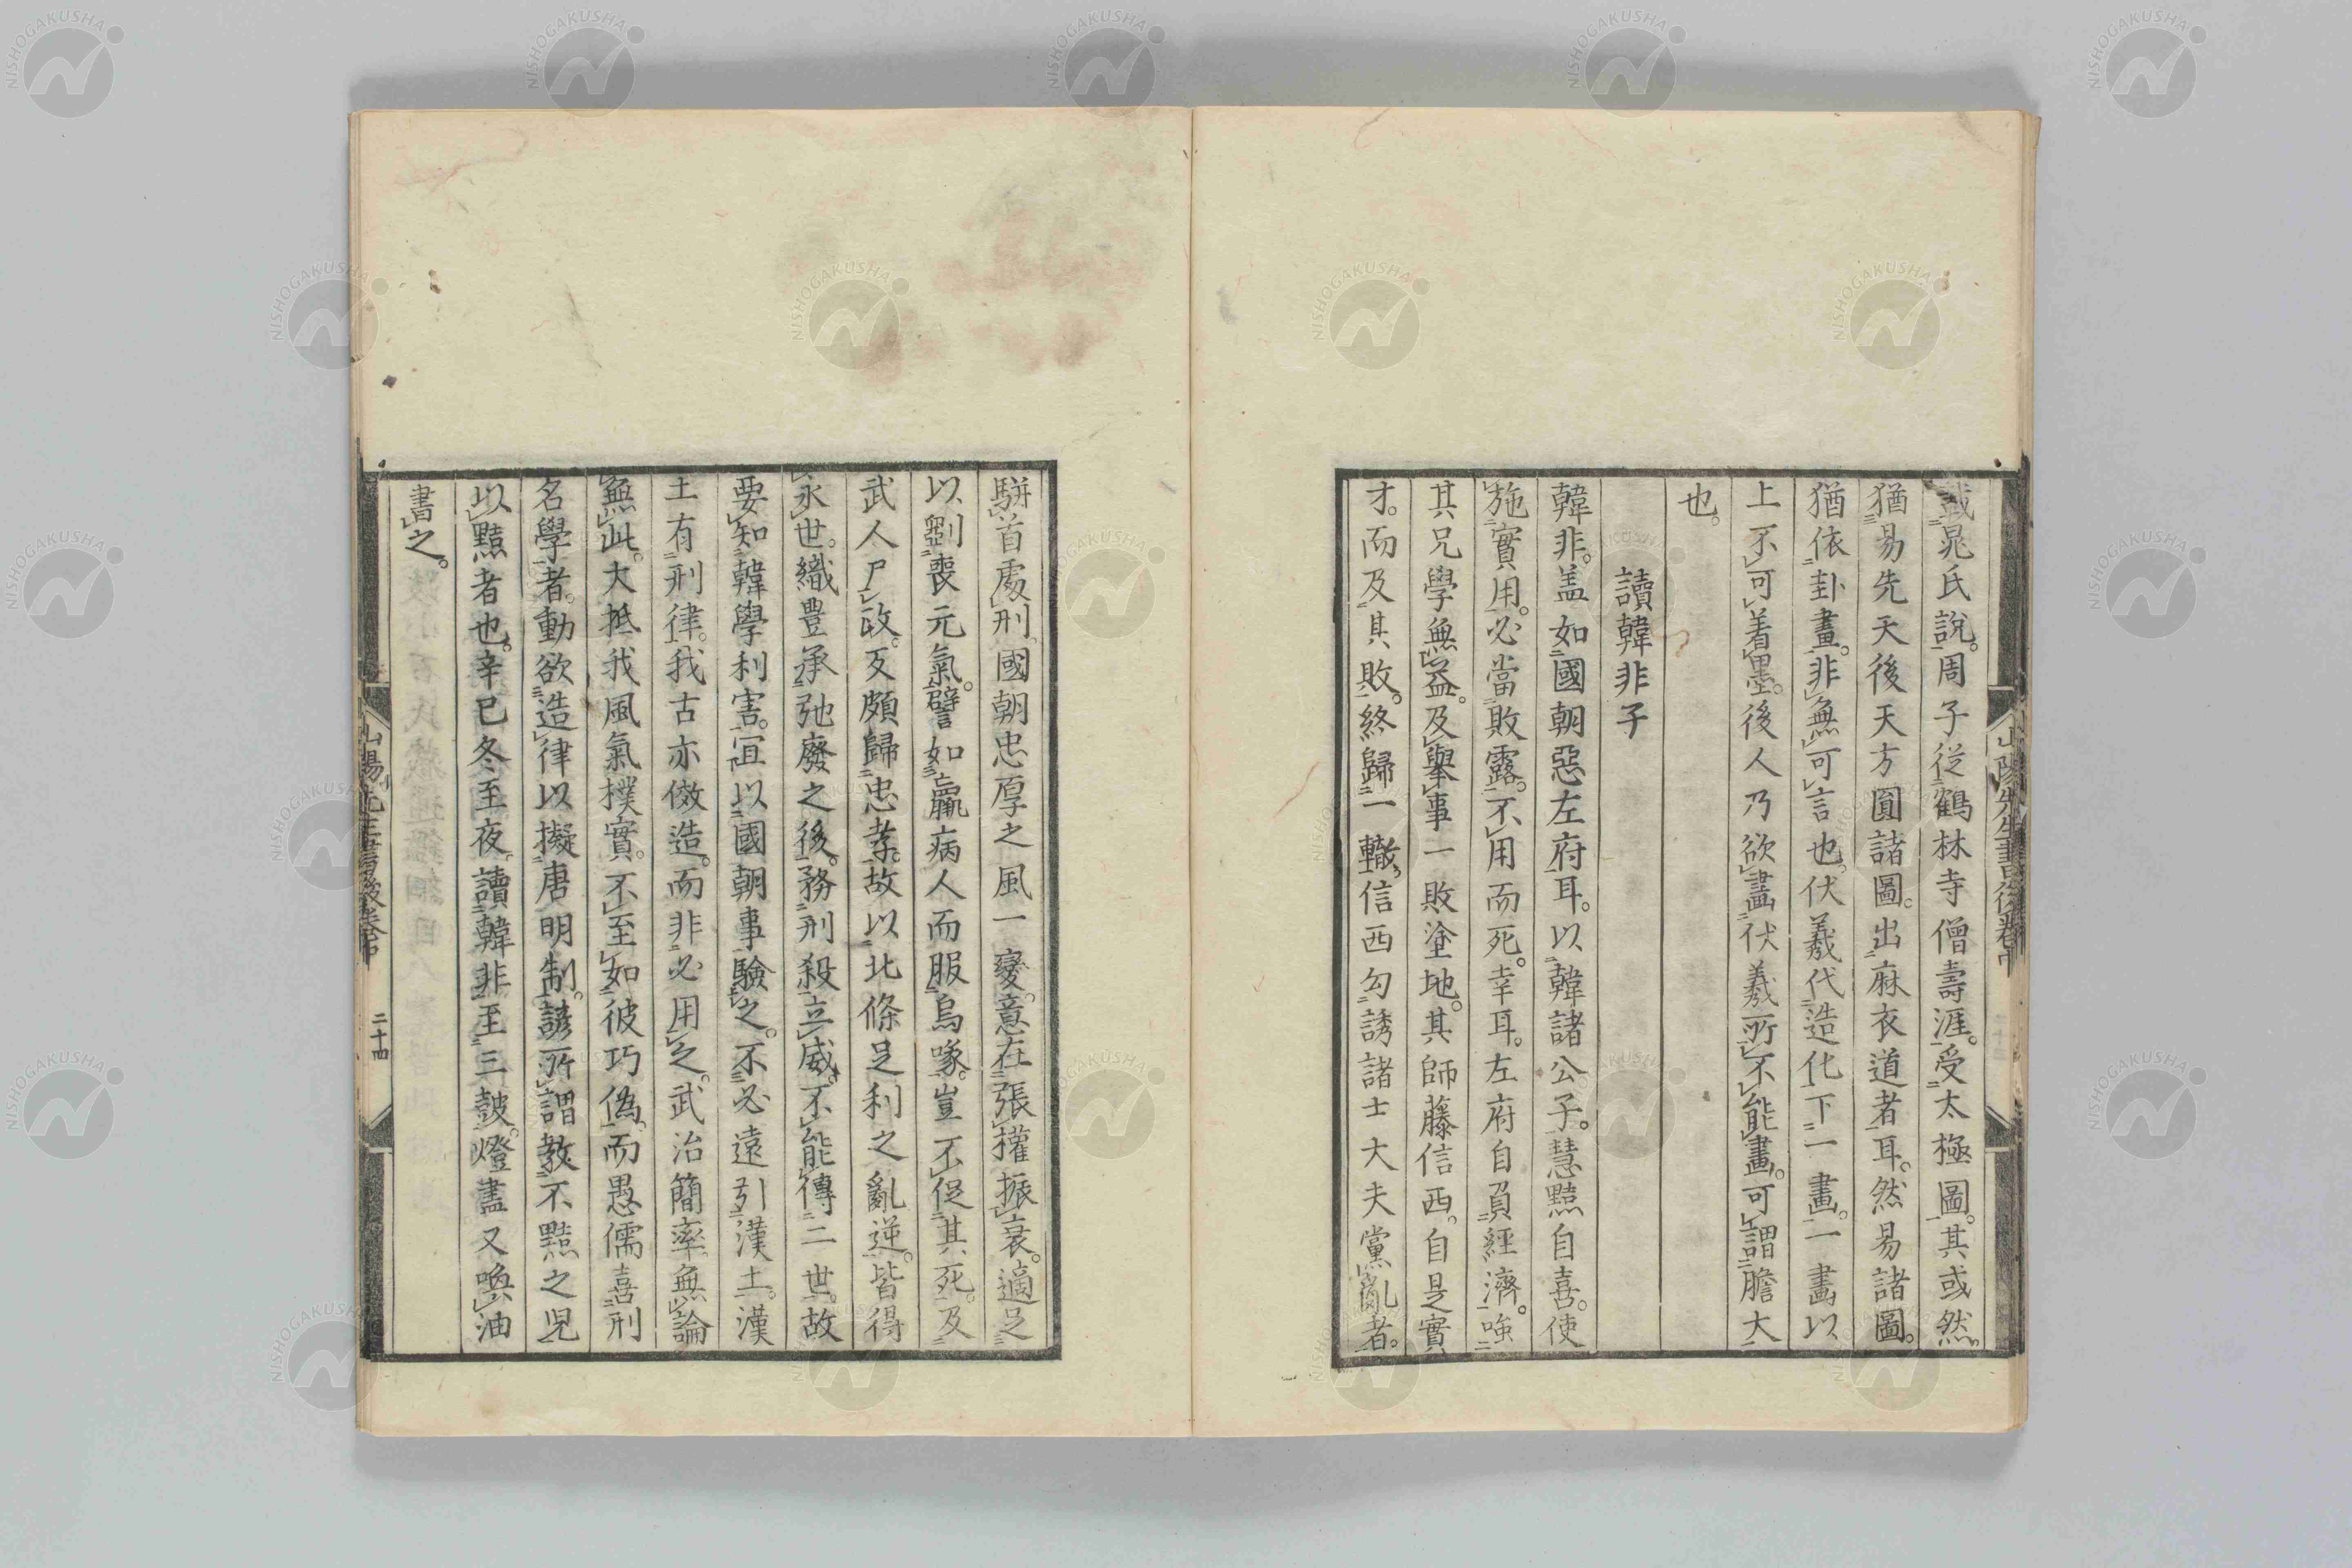 載晁氏說。周子從鶴林寺僧壽涯。受太極圖。其或然。
猶易先天後天方圓諸圖。出麻衣道者耳。然易諸圖。
猶依卦畫。非無可言也。伏羲代造化下一畫。一畫以
上不可着墨。後人乃欲畫伏羲所不能畫。可謂膽大
也。
讀韓非子
韓非。盖如國朝惡左府耳。以韓諸公子。慧黠自喜。使
施實用。必當敗露。不用而死。幸耳。左府自負經濟。嗤
其兄學無益。及舉事一敗塗地。其師藤信西。自是實
才。而及其敗。終歸一轍。信西勾誘諸士大夫黨亂者。
駢首處刑。國朝忠厚之風一變。意在張權振衰。適足
以劉喪元氣。譬如羸病人而服烏喙。豈不促其死。及
武人尸政。反頗歸忠孝。故以北條足利之亂逆。皆得
永世。織豊承弛廢之後。務刑殺立威。不能傳二世。故
要知韓學利害。宜以國朝事驗之。不必遠引漢土。漢
土有刑律。我古亦倣造。而非必用之。武治簡率無論
無此。大抵我風氣撲實。不至如彼巧僞。而愚儒喜刑
名學者。動欲造律以擬唐明制。諺所謂教不黠之児
以黠者也。辛巳冬至夜。讀韓非至三皷。燈盡又喚油
書之。
山陽先生書後卷中
二十四
NISHOGAKUSHA